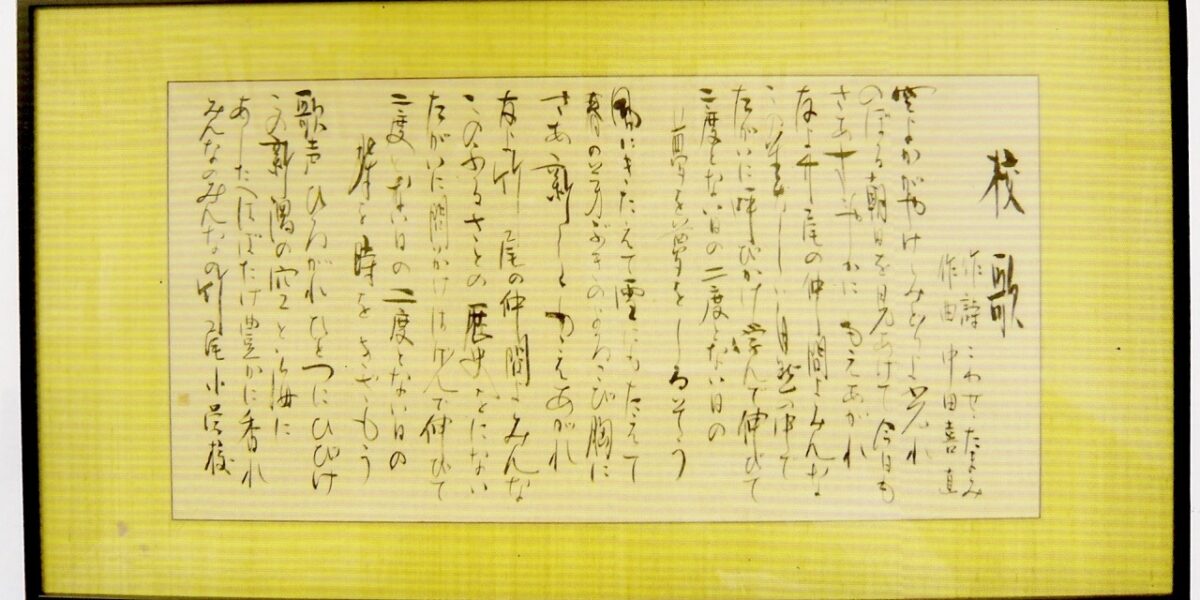 校歌
作詩 こわせ・たまみ
作曲 中田喜直
空よかがやけ みどりよ光れ
のぼる朝日を見あげて 今日も
さあすこやかに もえあがれ
友よ竹尾の仲間よ みんな
この美しい自然の中で
たがいに呼びかけ 学んで伸びて
二度とない日の 二度とない日の
夢を夢をしるそう
風にきたえて 雪にもたえて
春の芽ぶきのよろこび胸に
さあ新しく もえあがれ
友よ竹尾の仲間よ みんな
このふるさとの歴史をにない
たがいに問いかけ はげんで伸びて
二度とない日の 二度とない日の
時を時をきざもう
歌声ひろがれ ひとつにひびけ
この新潟の空と海に
あしたへはばたけ 豊かに香れ
みんなのみんなの竹尾小学校